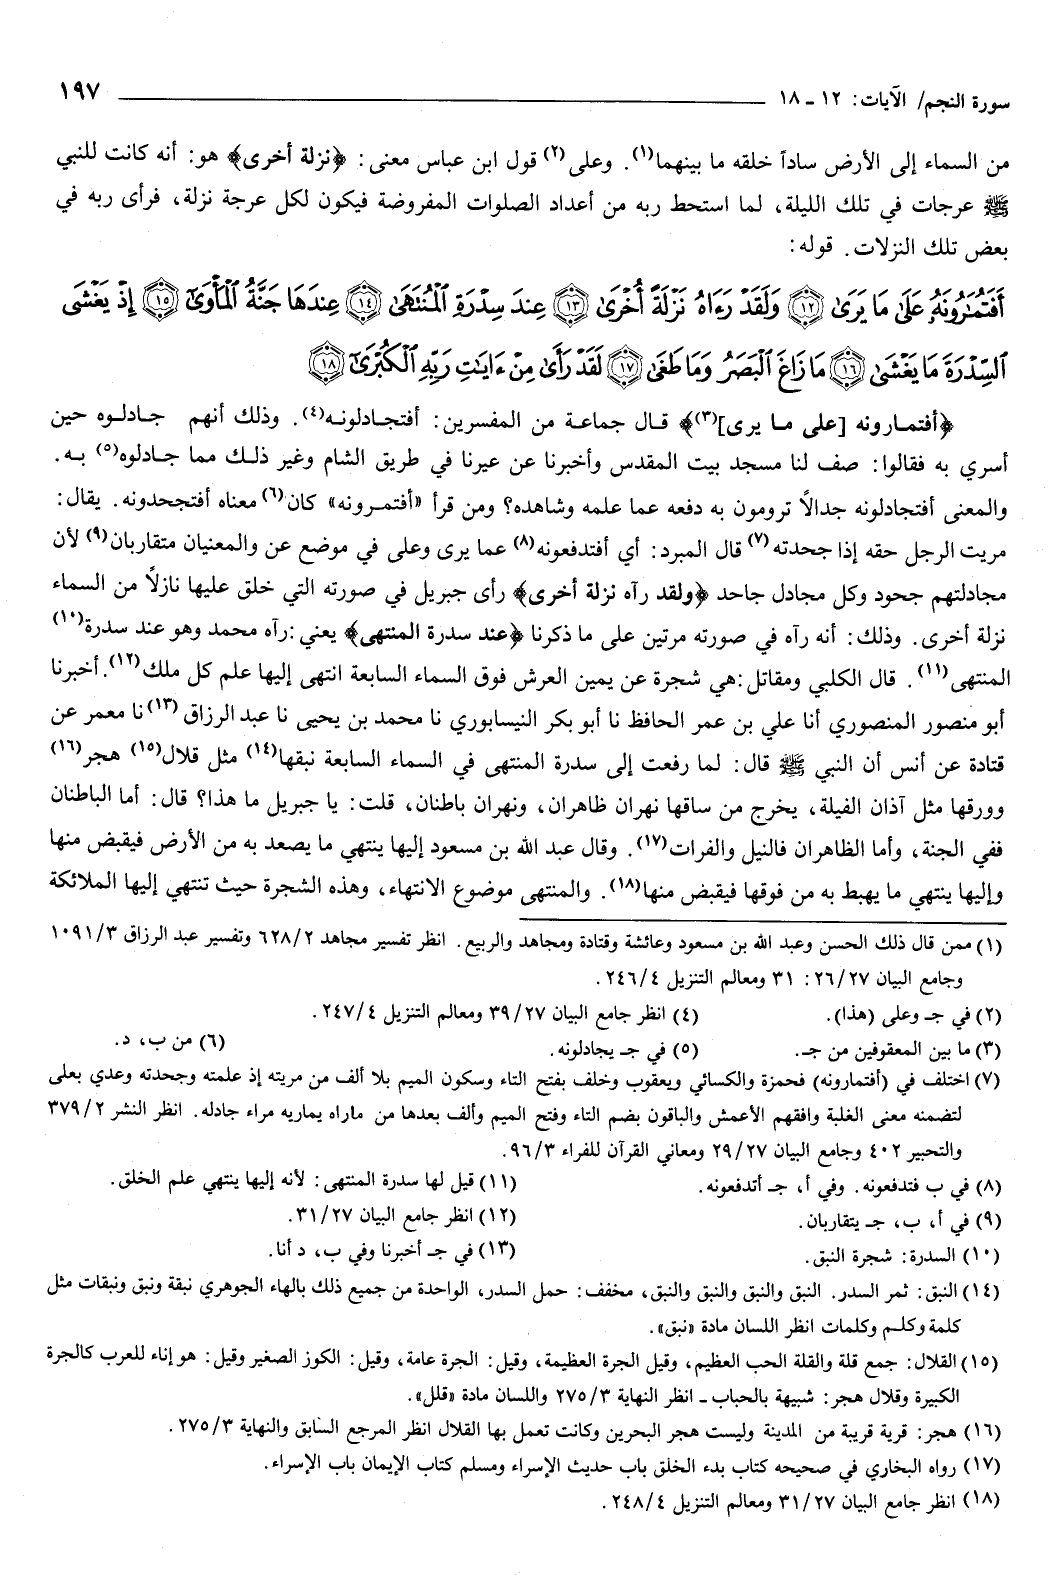 سورة النجم/ الآيات: ١٢ - ١٨ ١٩٧
من السماء إلى الأرض ساداً خلقه ما بينهما(١). وعلى(٢) قول ابن عباس معنى: ﴿نزلة أخرى﴾ هو: أنه كانت للنبي
ﷺ عرجات في تلك الليلة، لما استحط ربه من أعداد الصلوات المفروضة فيكون لكل عرجة نزلة، فرأى ربه في
بعض تلك النزلات. قوله:
أَفَتُمَٰرُونَهُۥ عَلَىٰ مَا يَرَىٰ ١٢ وَلَقَدْ رَءَاهُ نَزْلَةً أُخْرَىٰ ١٣ عِندَ سِدْرَةِ ٱلْمُنتَهَىٰ ١٤ عِندَهَا جَنَّةُ ٱلْمَأْوَىٰٓ ١٥ إِذْ يَغْشَى
ٱلسِّدْرَةَ مَا يَغْشَىٰ ١٦ مَا زَاغَ ٱلْبَصَرُ وَمَا طَغَىٰ ١٧ لَقَدْ رَأَىٰ مِنْ ءَايَٰتِ رَبِّهِ ٱلْكُبْرَىٰٓ ١٨
﴿أفتمارونه [على ما يرى](٣)﴾ قال جماعة من المفسرين: أفتجادلونه(٤). وذلك أنهم جادلوه حين
أسري به فقالوا: صف لنا مسجد بيت المقدس وأخبرنا عن عيرنا في طريق الشام وغير ذلك مما جادلوه(٥) به.
والمعنى أفتجادلونه جدالاً ترومون به دفعه عما علمه وشاهده؟ ومن قرأ «أفتمرونه» كان(٦) معناه أفتجحدونه. يقال:
مريت الرجل حقه إذا جحدته(٧) قال المبرد: أي أفتدفعونه(٨) عما يرى وعلى في موضع عن والمعنيان متقاربان(٩) لأن
مجادلتهم جحود وكل مجادل جاحد ﴿ولقد رآه نزلة أخرى﴾ رأى جبريل في صورته التي خلق عليها نازلاً من السماء
نزلة أخرى. وذلك: أنه رآه في صورته مرتين على ما ذكرنا ﴿عند سدرة المنتهى﴾ يعني: رآه محمد وهو عند سدرة(١٠)
المنتهى(١١). قال الكلبي ومقاتل: هي شجرة عن يمين العرش فوق السماء السابعة انتهى إليها علم كل ملك(١٢). أخبرنا
أبو منصور المنصوري أنا علي بن عمر الحافظ نا أبو بكر النيسابوري نا محمد بن يحيى نا عبد الرزاق(١٣) نا معمر عن
قتادة عن أنس أن النبي ﷺ قال: لما رفعت إلى سدرة المنتهى في السماء السابعة نبقها(١٤) مثل قلال(١٥) هجر(١٦)
وورقها مثل آذان الفيلة، يخرج من ساقها نهران ظاهران، ونهران باطنان، قلت: يا جبريل ما هذا؟ قال: أما الباطنان
ففي الجنة، وأما الظاهران فالنيل والفرات(١٧). وقال عبد الله بن مسعود إليها ينتهي ما يصعد به من الأرض فيقبض منها
وإليها ينتهي ما يهبط به من فوقها فيقبض منها(١٨). والمنتهى موضوع الانتهاء، وهذه الشجرة حيث تنتهي إليها الملائكة
(١) ممن قال ذلك الحسن وعبد الله بن مسعود وعائشة وقتادة ومجاهد والربيع. انظر تفسير مجاهد ٦٢٨/٢ وتفسير عبد الرزاق ١٠٩١/٣
وجامع البيان ٢٦/٢٧: ٣١ ومعالم التنزيل ٢٤٦/٤.
(٢) في جـ وعلى (هذا). (٤) انظر جامع البيان ٣٩/٢٧ ومعالم التنزيل ٢٤٧/٤.
(٣) ما بين المعقوفين من جـ. (٥) في جـ يجادلونه. (٦) من ب، د.
(٧) اختلف في (أفتمارونه) فحمزة والكسائي ويعقوب وخلف بفتح التاء وسكون الميم بلا ألف من مريته إذ علمته وجحدته وعدي بعلى
لتضمنه معنى الغلبة وافقهم الأعمش والباقون بضم التاء وفتح الميم وألف بعدها من ماراه يماريه مراء جادله. انظر النشر ٣٧٩/٢
والتحبير ٤٠٢ وجامع البيان ٢٩/٢٧ ومعاني القرآن للفراء ٩٦/٣.
(٨) في ب فتدفعونه. وفي أ، جـ أتدفعونه. (١١) قيل لها سدرة المنتهى: لأنه إليها ينتهي علم الخلق.
(٩) في أ، ب، جـ يتقاربان. (١٢) انظر جامع البيان ٣١/٢٧.
(١٠) السدرة: شجرة النبق. (١٣) في جـ أخبرنا وفي ب، د أنا.
(١٤) النبق: ثمر السدر. النبق والنبق والنبق والنبق، مخفف: حمل السدر، الواحدة من جميع ذلك بالهاء الجوهري نبقة ونبق ونبقات مثل
كلمة وكلم وكلمات انظر اللسان مادة «نبق».
(١٥) القلال: جمع قلة والقلة الحب العظيم، وقيل الجرة العظيمة، وقيل: الجرة عامة، وقيل: الكوز الصغير وقيل: هو إناء للعرب كالجرة
الكبيرة وقلال هجر: شبيهة بالحباب - انظر النهاية ٢٧٥/٣ واللسان مادة «قلل».
(١٦) هجر: قرية قريبة من المدينة وليست هجر البحرين وكانت تعمل بها القلال انظر المرجع السابق والنهاية ٢٧٥/٣.
(١٧) رواه البخاري في صحيحه كتاب بدء الخلق باب حديث الإسراء ومسلم كتاب الإيمان باب الإسراء.
(١٨) انظر جامع البيان ٣١/٢٧ ومعالم التنزيل ٢٤٨/٤.